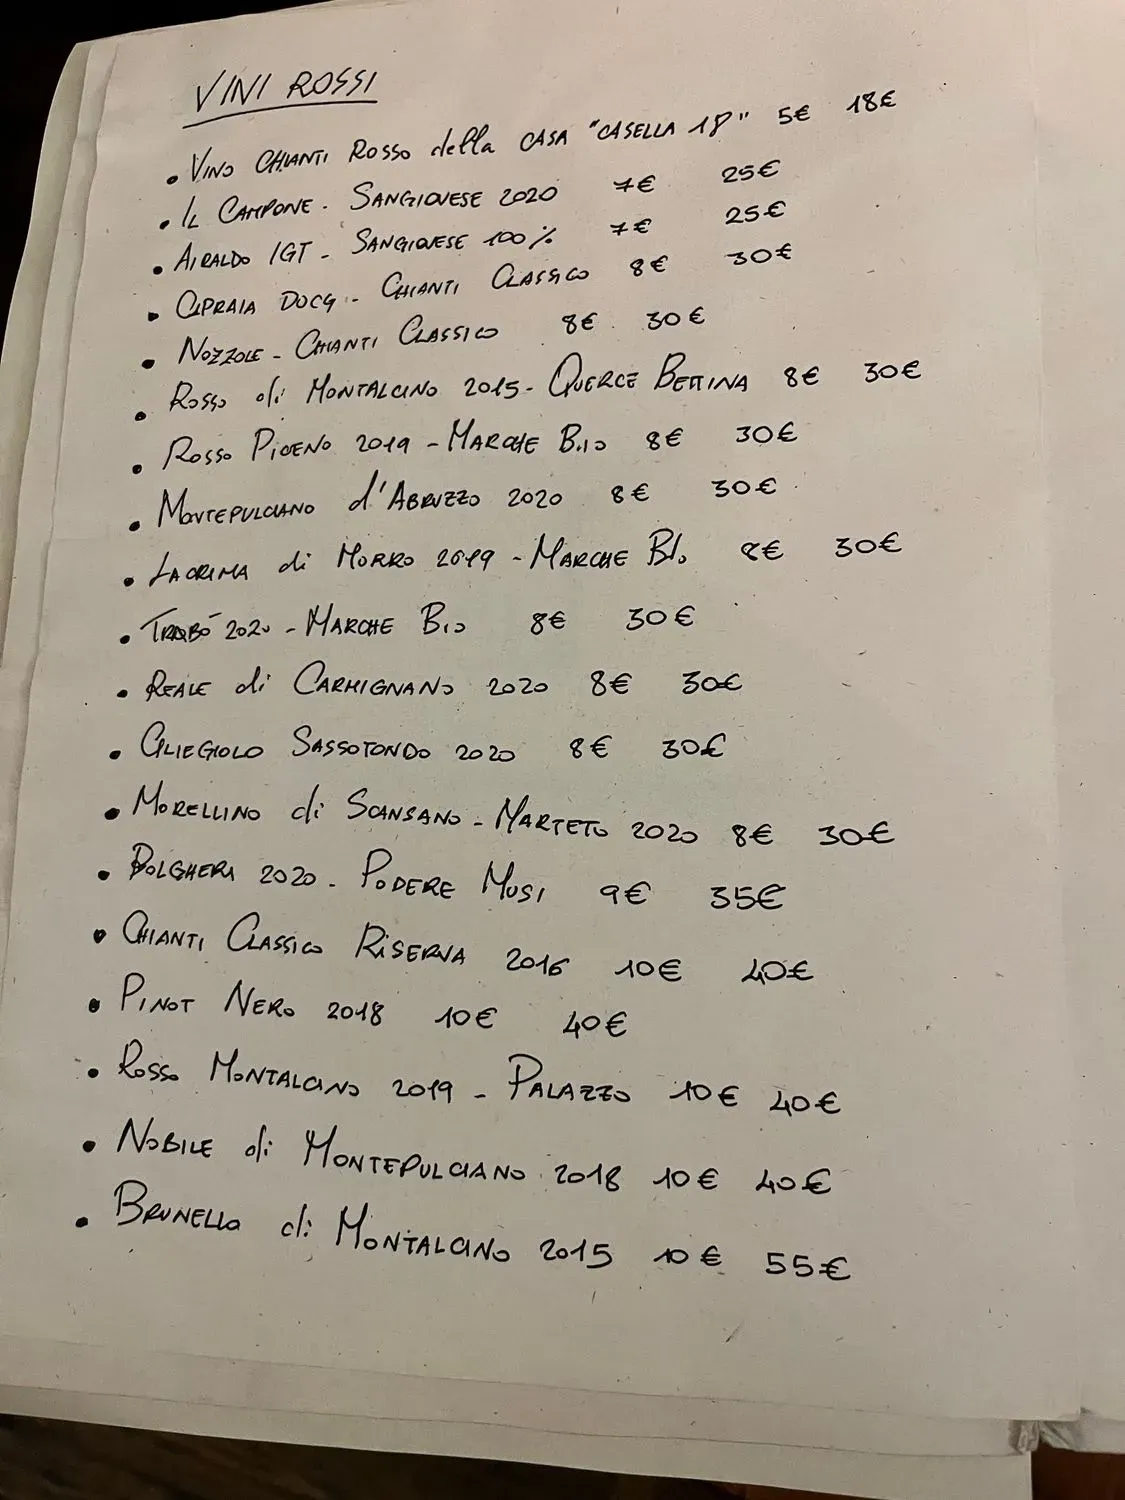 VINI ROSSI
• VINO CHIANTI ROSSO della CASA "CASELLA 18" 5€ 18€
• IL CAMPONE - SANGIOVESE 2020 7€ 25€
• AIRALDO IGT - SANGIOVESE 100% 7€ 25€
• CIPRAIA DOCG - CHIANTI CLASSICO 8€ 30€
• NOZZOLE - CHIANTI CLASSICO 8€ 30€
• ROSSO di MONTALCINO 2015 - QUERCE BETTINA 8€ 30€
• ROSSO PICENO 2019 - MARCHE BIO 8€ 30€
• MONTEPULCIANO d'ABRUZZO 2020 8€ 30€
• LACRIMA di MORRO 2019 - MARCHE BIO 8€ 30€
• TRABÓ 2020 - MARCHE BIO 8€ 30€
• REALE di CARMIGNANO 2020 8€ 30€
• CILIEGIOLO SASSOTONDO 2020 8€ 30€
• MORELLINO di SCANSANO - MARTETO 2020 8€ 30€
• BOLGHERI 2020 - PODERE MUSI 9€ 35€
• CHIANTI CLASSICO RISERVA 2016 10€ 40€
• PINOT NERO 2018 10€ 40€
• ROSSO MONTALCINO 2019 - PALAZZO 10€ 40€
• NOBILE di MONTEPULCIANO 2018 10€ 40€
• BRUNELLO di MONTALCINO 2015 10€ 55€